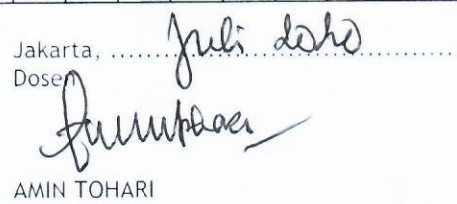 Jakarta, ........ Juli 2020 ........
Dosen
AMIN TOHARI